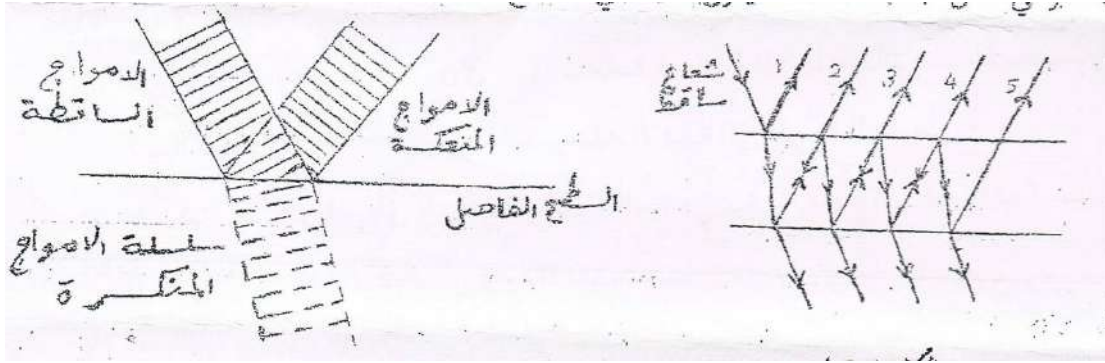 الامواج
الساقطة
الامواج
المنعكسة
السطح الفاصل
سلسلة الامواج
المنكسرة
شعاع
ساقط
1 2 3 4 5